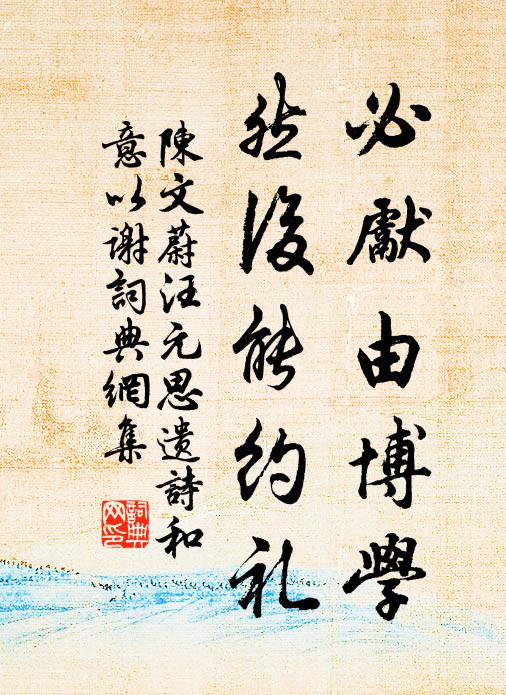 必獻由博學
然後能約礼
陳文蔚汪元思遺詩和
意以谢詞典網集
詞典
网印